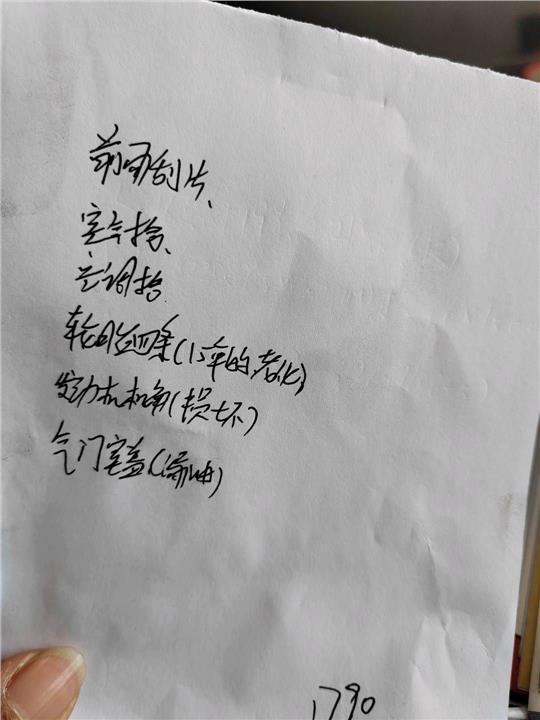 前雨刮片、
空气格、
空调格
轮胎四条(15年的老化)
发动机机角(损坏)
气门室盖(漏油)
1790